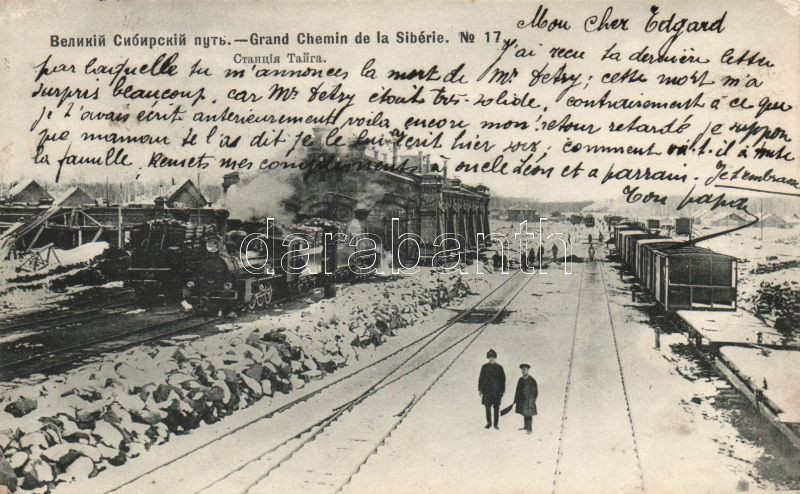 Великій Сибирскій путь.—Grand Chemin de la Sibérie. № 17
Станція Тайга.
Mon cher Edgard
J'ai reçu ta dernière lettre
par laquelle tu m'annonces la mort de Mr Detry; cette mort m'a
surpris beaucoup, car Mr Detry était très-solide, contrairement à ce que
je t'avais écrit antérieurement voila encore mon retour retardé, je suppon
que maman te l'as dit je le lui ai écrit hier soir; comment va-t-il à toute
la famille. Remets mes compliments à oncle Léon et a parrain. Je t'embrasse
Ton papa
darabanth